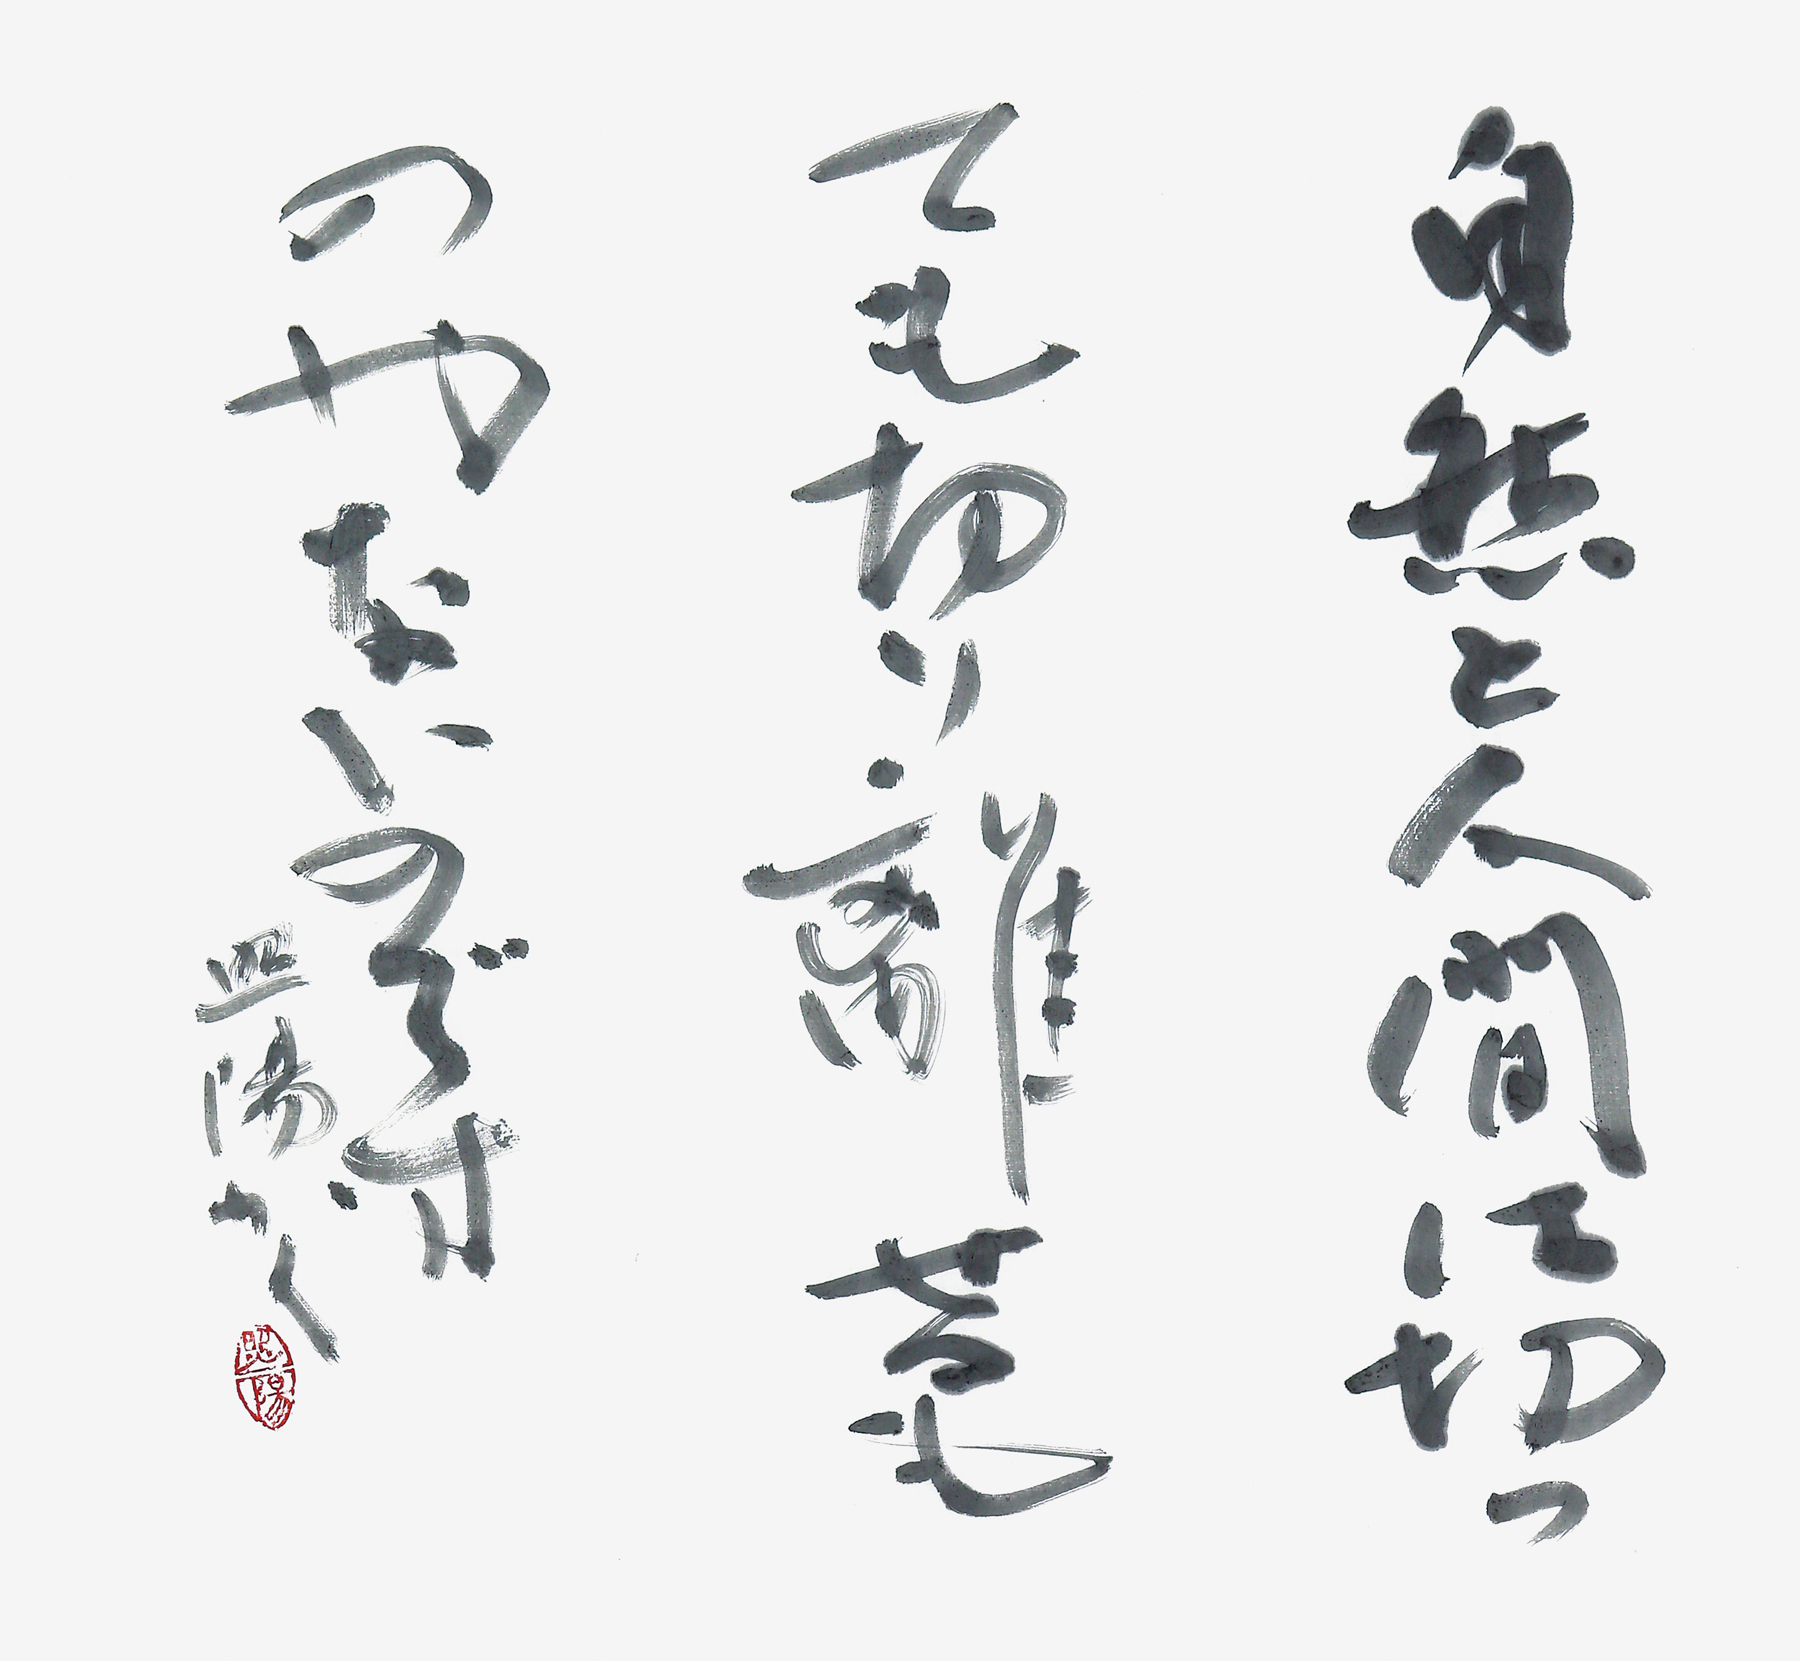 自然と人間は切っ
ても切り離せるも
のやない
昭陽かく
昭陽